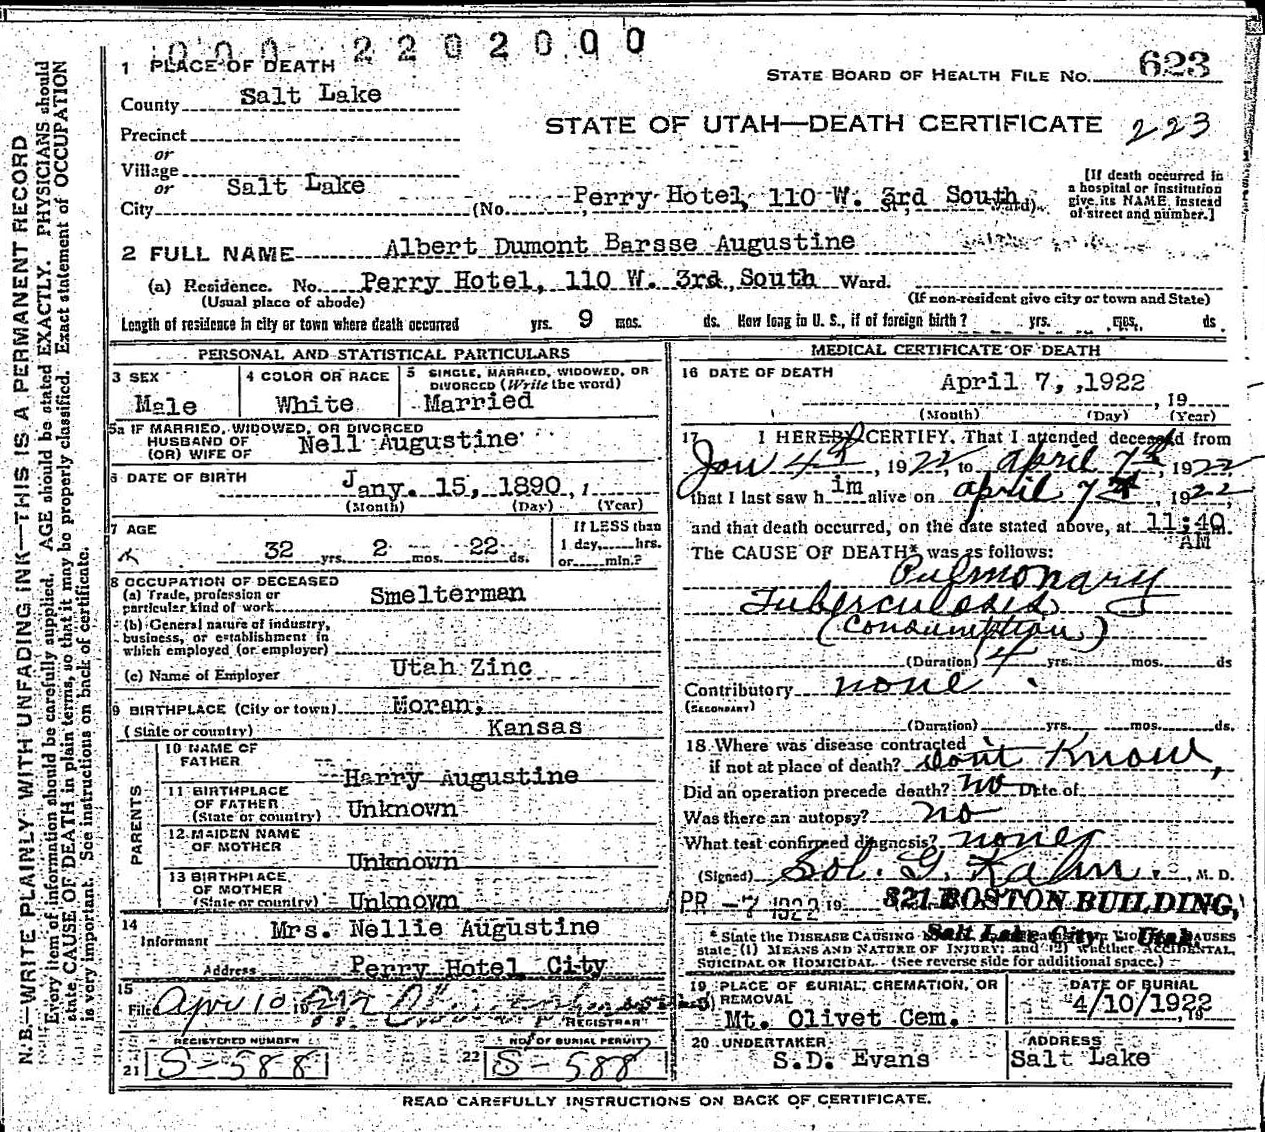 000 2202000
1 PLACE OF DEATH
STATE BOARD OF HEALTH FILE NO. 623
County Salt Lake
STATE OF UTAH—DEATH CERTIFICATE 223
Precinct
or
Village
or
City Salt Lake (No. Perry Hotel, 110 W. 3rd South St., Ward)
[If death occurred in
a hospital or institution
give its NAME instead
of street and number.]
2 FULL NAME Albert Dumont Barsse Augustine
(a) Residence. No. Perry Hotel, 110 W. 3rd, South Ward.
(Usual place of abode) (If non-resident give city or town and State)
Length of residence in city or town where death occurred yrs. 9 mos. ds. How long in U. S., if of foreign birth? yrs. mos. ds
PERSONAL AND STATISTICAL PARTICULARS
3 SEX Male
4 COLOR OR RACE White
5 SINGLE, MARRIED, WIDOWED, OR
DIVORCED (Write the word)
Married
5a IF MARRIED, WIDOWED, OR DIVORCED
HUSBAND OF
(OR) WIFE OF Nell Augustine
6 DATE OF BIRTH Jany. 15, 1890, 1
(Month) (Day) (Year)
7 AGE 32 yrs. 2 mos. 22 ds.
If LESS than
1 day, hrs.
or min.?
8 OCCUPATION OF DECEASED
(a) Trade, profession or
particular kind of work Smelterman
(b) General nature of industry,
business, or establishment in
which employed (or employer)
(c) Name of Employer Utah Zinc
9 BIRTHPLACE (City or town) Moran,
(State or country) Kansas
PARENTS
10 NAME OF
FATHER Harry Augustine
11 BIRTHPLACE
OF FATHER
(State or country) Unknown
12 MAIDEN NAME
OF MOTHER Unknown
13 BIRTHPLACE
OF MOTHER
(State or country) Unknown
14
Informant Mrs. Nellie Augustine
Address Perry Hotel, City
15
Filed Apr 10 19
REGISTRAR
REGISTERED NUMBER
21 S-588
NO. OF BURIAL PERMIT
22 S-588
MEDICAL CERTIFICATE OF DEATH
16 DATE OF DEATH April 7, ,1922
, 19
(Month) (Day) (Year)
17 I HEREBY CERTIFY, That I attended deceased from
Jan 4th, 1922, to april 7th, 1922
that I last saw him alive on april 7th, 1922
and that death occurred, on the date stated above, at 11:40 m.
AM
The CAUSE OF DEATH* was as follows:
Pulmonary
Tuberculosis
(Consumption)
(Duration) 4 yrs. mos. ds
Contributory none
(SECONDARY)
(Duration) yrs. mos. ds.
18 Where was disease contracted
if not at place of death? dont Know,
Did an operation precede death? no Date of
Was there an autopsy? no
What test confirmed diagnosis? none
(Signed) Sol. G. Kahn, M. D.
PR -7 1922 19 321 BOSTON BUILDING,
Salt Lake City, Utah
*State the DISEASE CAUSING CAUSES
state (1) MEANS AND NATURE OF INJURY; and (2) whether ACCIDENTAL,
SUICIDAL or HOMICIDAL. (See reverse side for additional space.)
19 PLACE OF BURIAL, CREMATION, OR
REMOVAL
Mt. Olivet Cem.
DATE OF BURIAL
4/10/1922
, 19
20 UNDERTAKER
S.D. Evans
ADDRESS
Salt Lake
READ CAREFULLY INSTRUCTIONS ON BACK OF CERTIFICATE.
N. B.—WRITE PLAINLY WITH UNFADING INK—THIS IS A PERMANENT RECORD
Every item of information should be carefully supplied. AGE should be stated EXACTLY. PHYSICIANS should
state CAUSE OF DEATH in plain terms, so that it may be properly classified. Exact statement of OCCUPATION
is very important. See instructions on back of certificate.